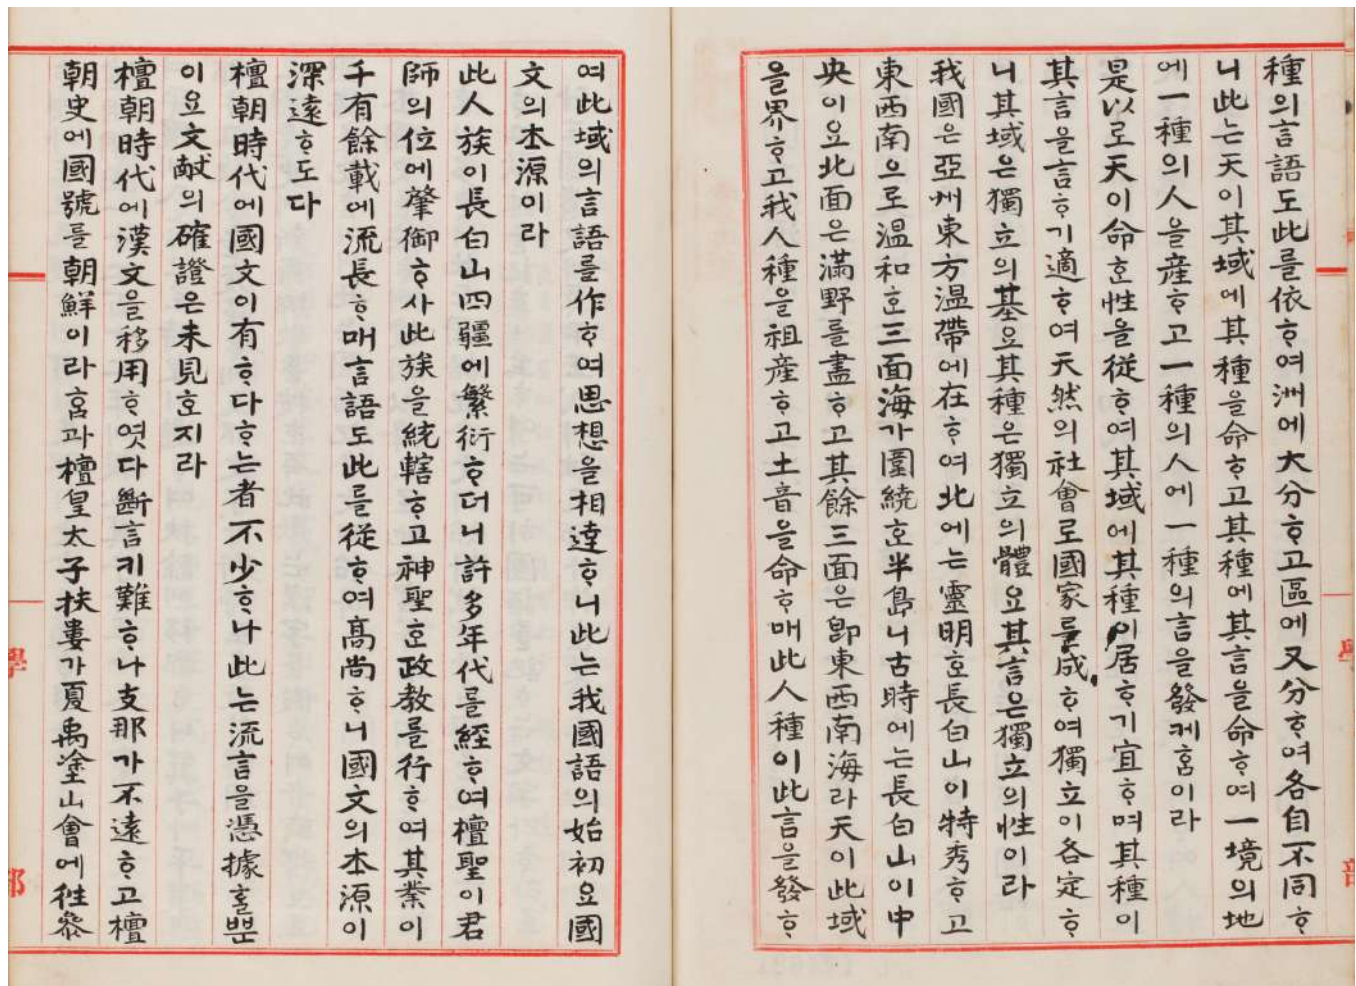 種의言語도此를依ᄒᆞ여洲에大分ᄒᆞ고區에又分ᄒᆞ여各自不同ᄒᆞ
니此는天이其域에其種을命ᄒᆞ고其種에其言을命ᄒᆞ여一境의地
에一種의人을産ᄒᆞ고一種의人에一種의言을發케홈이라
是以로天이命ᄒᆞᆫ性을從ᄒᆞ여其域에其種이居ᄒᆞ기宜ᄒᆞ며其種이
其言을言ᄒᆞ기適ᄒᆞ여天然의社會로國家를成ᄒᆞ여獨立이各定ᄒᆞ
니其域은獨立의基요其種은獨立의體요其言은獨立의性이라
我國은亞州東方溫帶에在ᄒᆞ여北에는靈明ᄒᆞᆫ長白山이特秀ᄒᆞ고
東西南으로溫和ᄒᆞᆫ三面海가圍繞ᄒᆞᆫ半島니古時에는長白山이中
央이요北面은滿野를盡ᄒᆞ고其餘三面은卽東西南海라天이此域
을界ᄒᆞ고我人種을祖産ᄒᆞ고土音을命ᄒᆞ매此人種이此言을發ᄒᆞ
여此域의言語를作ᄒᆞ여思想을相達ᄒᆞ니此는我國語의始初요國
文의本源이라
此人族이長白山四疆에繁衍ᄒᆞ더니許多年代를經ᄒᆞ여檀聖이君
師의位에肇御ᄒᆞ사此族을統轄ᄒᆞ고神聖ᄒᆞᆫ政敎를行ᄒᆞ여其業이
千有餘載에流長ᄒᆞ매言語도此를從ᄒᆞ여高尙ᄒᆞ니國文의本源이
深遠ᄒᆞ도다
檀朝時代에國文이有ᄒᆞ다ᄒᆞ는者不少ᄒᆞ나此는流言을憑據ᄒᆞᆯ뿐
이요文獻의確證은未見ᄒᆞᆫ지라
檀朝時代에漢文을移用ᄒᆞ엿다斷言키難ᄒᆞ나支那가不遠ᄒᆞ고檀
朝史에國號를朝鮮이라홈과檀皇太子扶婁가夏禹塗山會에往參
學
部